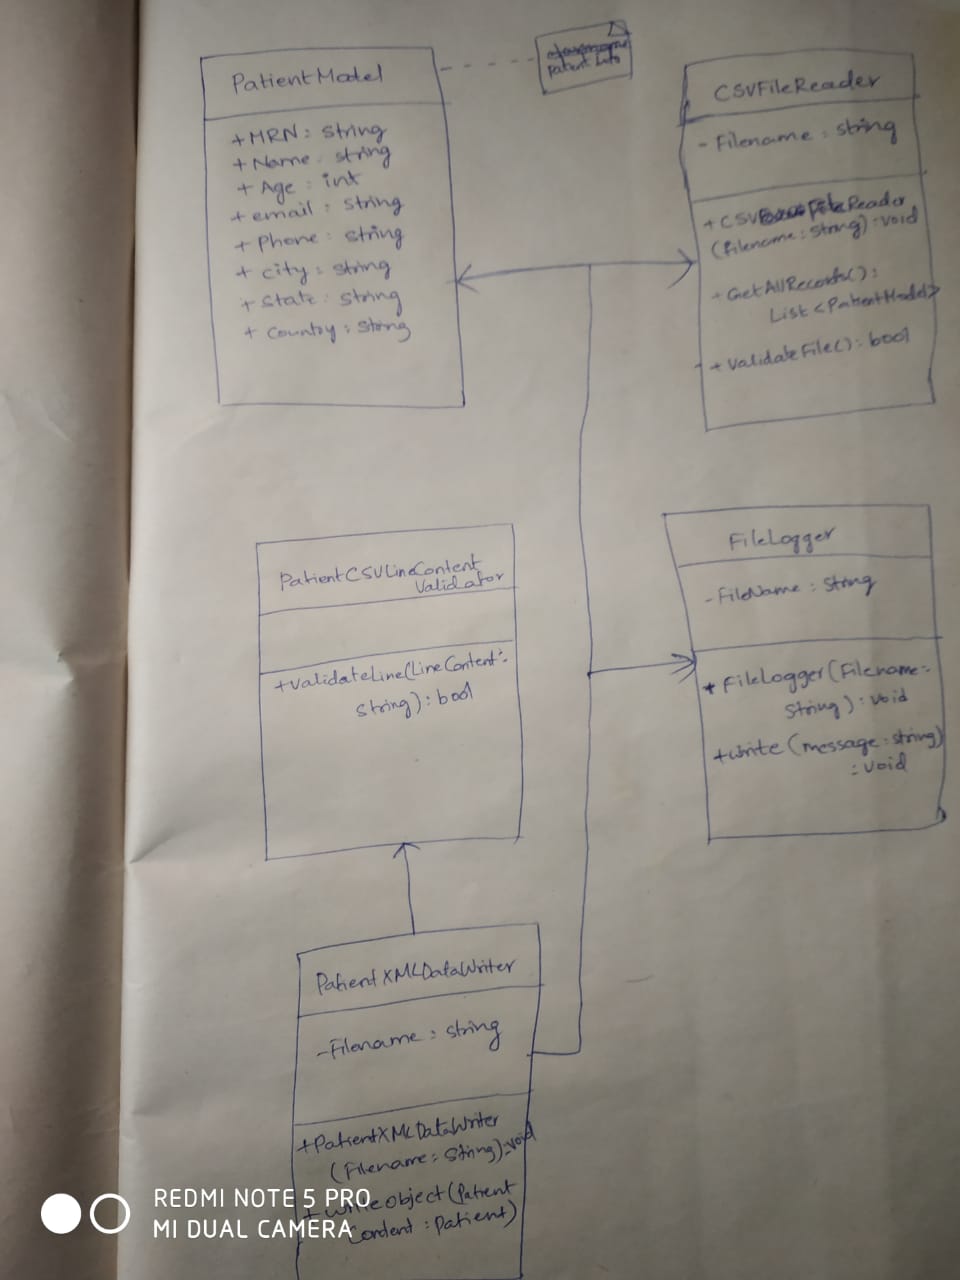 PatientModel
+MRN: string
+Name: string
+ Age: int
+ email: string
+ Phone: string
+ city: string
+ State: string
+ Country: string
patient Info
CSVFileReader
- Filename: string
+ CSVFileReader
(filename: string): void
+ GetAllRecords():
List<PatientModel>
+ ValidateFile(): bool
PatientCSVLineContent
Validator
+ValidateLine(LineContent:
String): bool
FileLogger
- FileName: String
+ FileLogger(Filename:
String): void
+write (message: string)
: void
PatientXMLDataWriter
-Filename: string
+PatientXMLDataWriter
(Filename: String): void
+ writeobject(Patient
Content: Patient)
REDMI NOTE 5 PRO
MI DUAL CAMERA